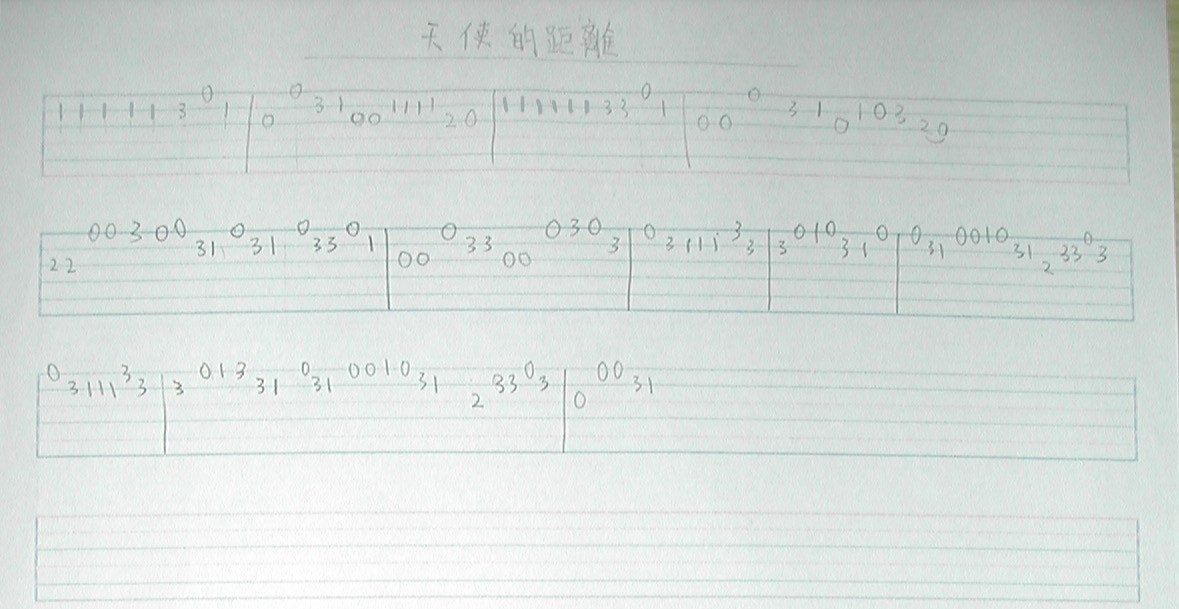 天使的距離
1 1 1 1 1 3 0 1 | 0 0 3 1 0 0 1 1 1 1 2 0 | 1 1 1 1 1 1 1 3 3 0 1 | 0 0 0 3 1 0 1 0 3 2 0
2 2 0 0 3 0 0 3 1 0 3 1 0 3 3 0 1 | 0 0 0 3 3 0 0 0 3 0 3 | 0 3 1 1 1 3 3 | 3 0 1 0 3 1 0 | 0 3 1 0 0 1 0 3 1 2 3 3 0 3
0 3 1 1 1 3 3 | 3 0 1 3 3 1 0 3 1 0 0 1 0 3 1 2 3 3 0 3 | 0 0 0 3 1